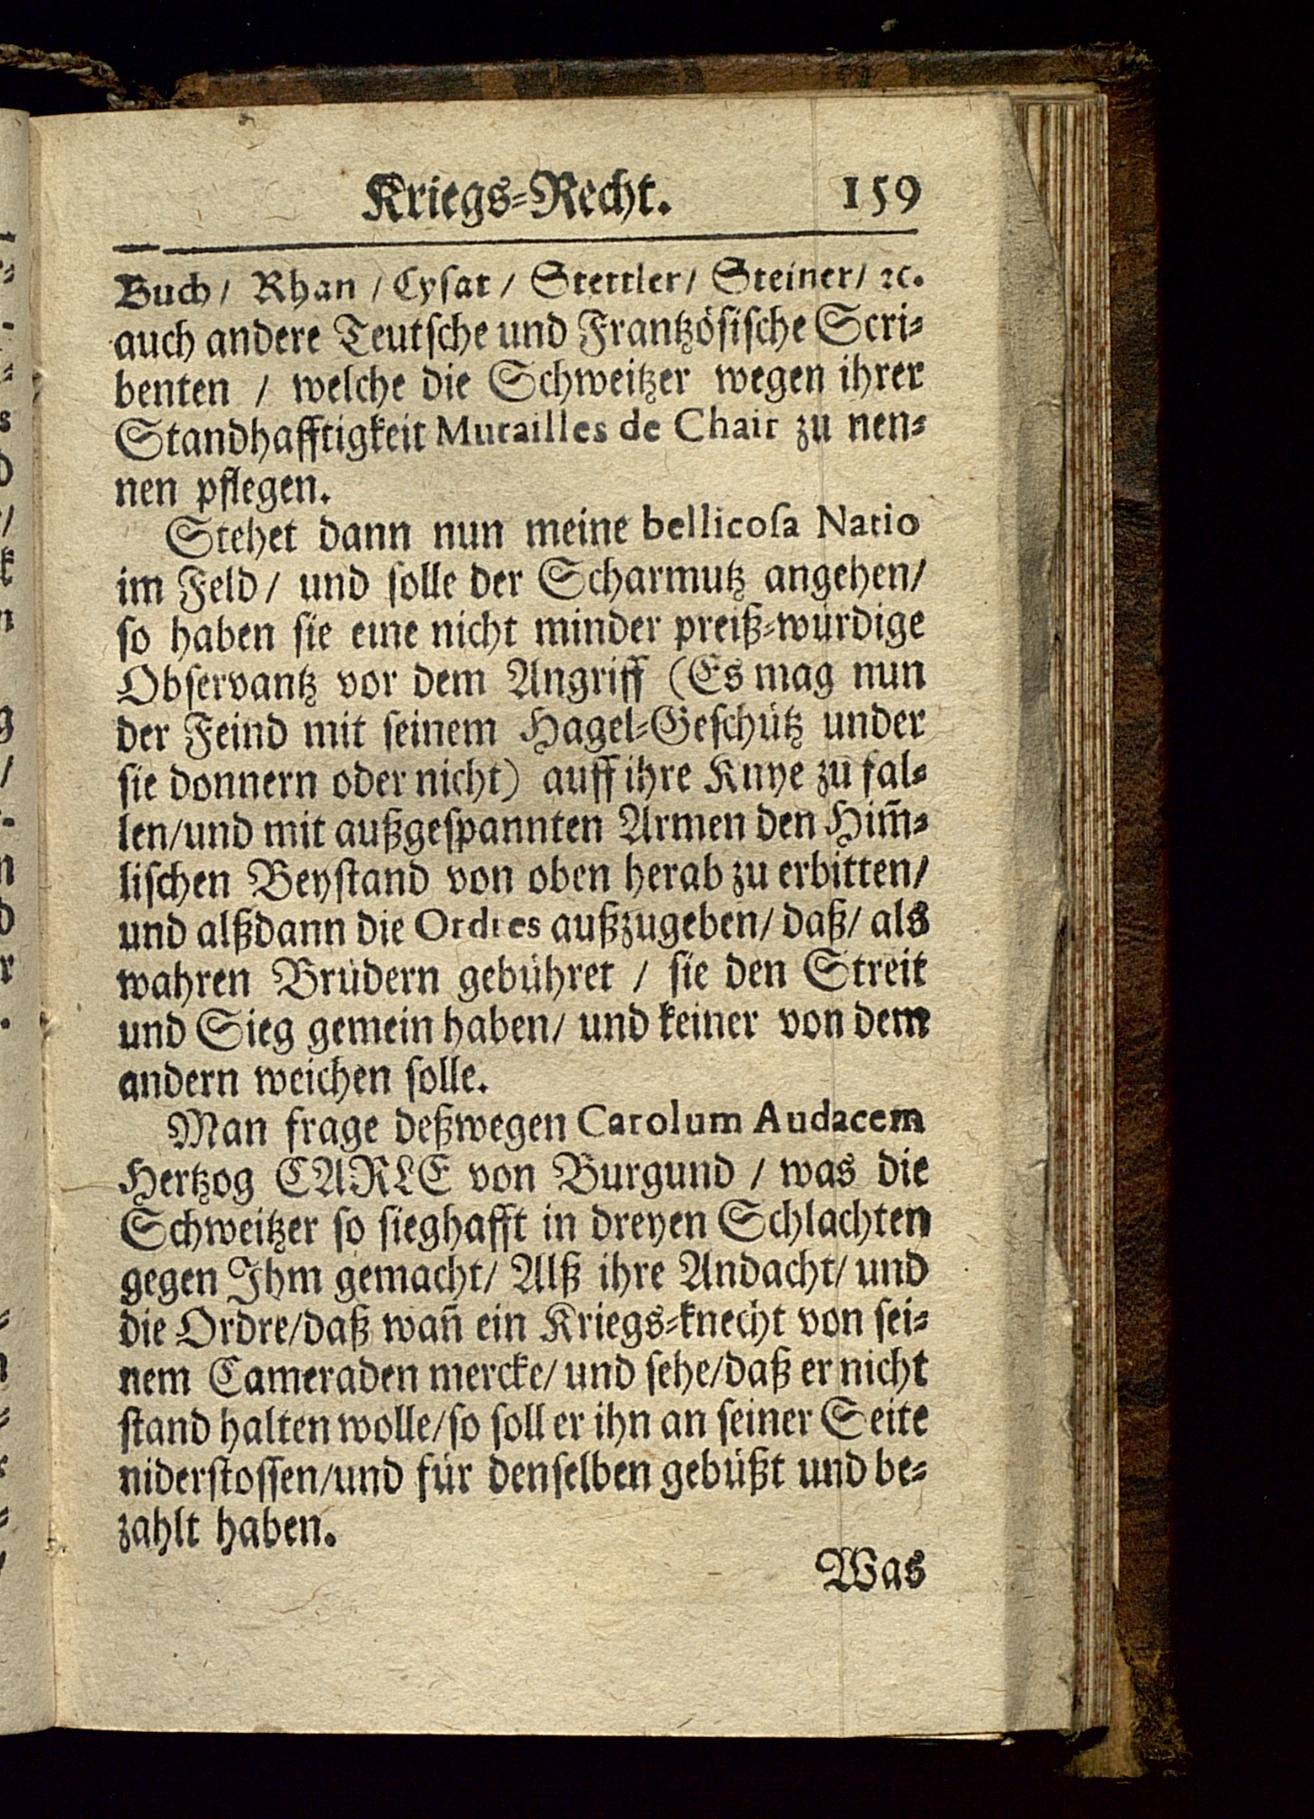 Kriegs-Recht. 159
Buch/ Rhan / Cysat / Stettler/ Steiner/ ꝛc.
auch andere Teutsche und Frantzösische Scri-
benten / welche die Schweitzer wegen ihrer
Standhafftigkeit Murailles de Chair zu nen-
nen pflegen.
Stehet dann nun meine bellicosa Natio
im Feld/ und solle der Scharmutz angehen/
so haben sie eine nicht minder preiß-würdige
Observantz vor dem Angriff (Es mag nun
der Feind mit seinem Hagel-Geschütz under
sie donnern oder nicht) auff ihre Knye zu fal-
len/und mit außgespannten Armen den Him̃-
lischen Beystand von oben herab zu erbitten/
und alßdann die Ordres außzugeben/ daß/ als
wahren Brüdern gebühret / sie den Streit
und Sieg gemein haben/ und keiner von dem
andern weichen solle.
Man frage deßwegen Carolum Audacem
Hertzog CARLE von Burgund / was die
Schweitzer so sieghafft in dreyen Schlachten
gegen Ihm gemacht/ Alß ihre Andacht/ und
die Ordre/daß wañ ein Kriegs-knecht von sei-
nem Cameraden mercke/ und sehe/daß er nicht
stand halten wolle/so soll er ihn an seiner Seite
niderstossen/und für denselben gebüßt und be-
zahlt haben.
Was